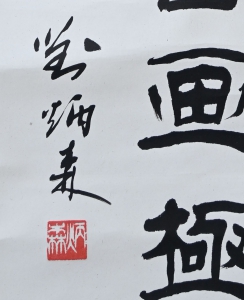 画極
劉炳森
炳森